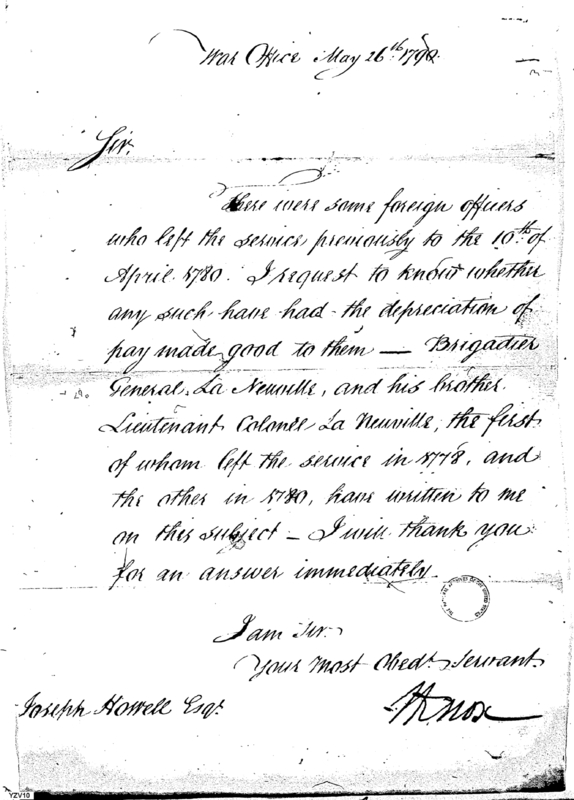 War Office May 26th 1790.
Sir.
There were some foreign officers
who left the service previously to the 10th of
April 1780. I request to know whether
any such have had the depreciation of
pay made good to them — Brigadier
General La Neuville, and his brother
Lieutenant Colonel La Neuville, the first
of whom left the service in 1778, and
the other in 1780, have written to me
on this subject — I will thank you
for an answer immediately.
I am Sir.
Your most Obedt. Servant
HKnox
Joseph Howell Esqr.
YZV10